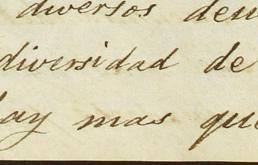 diversos
diversidad de
hay mas que